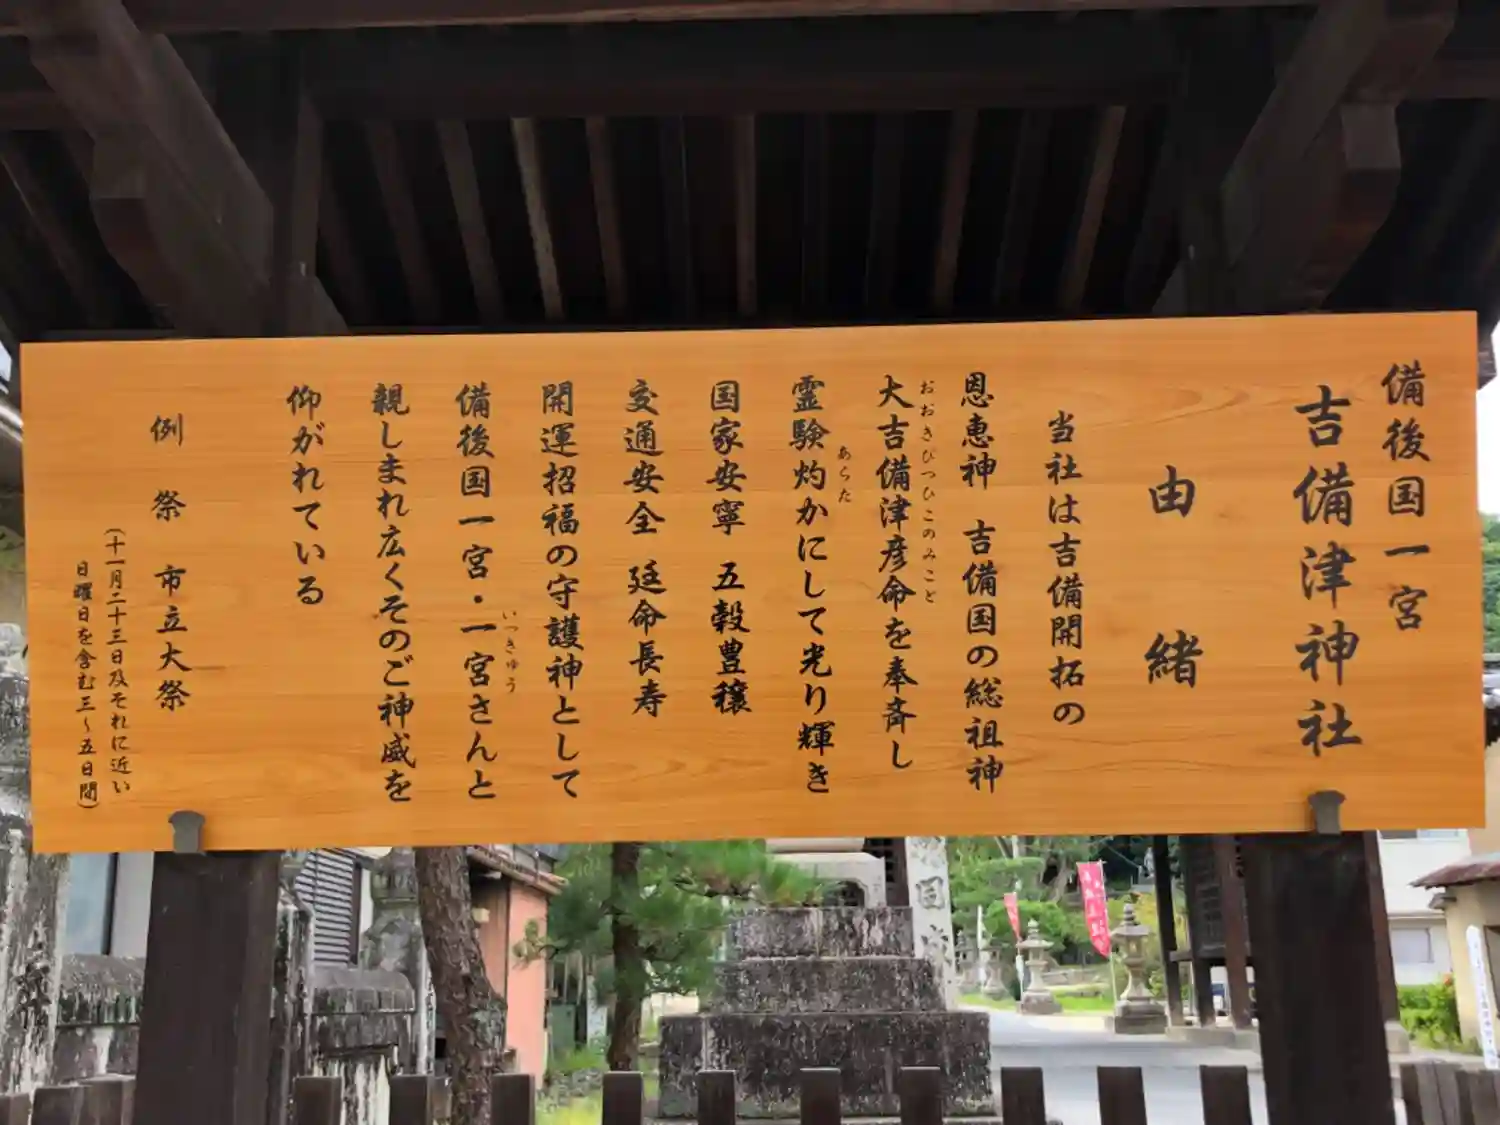 備後国一宮
吉備津神社
由緒
当社は吉備開拓の
恩恵神 吉備国の総祖神
おおきびつひこのみこと
大吉備津彦命を奉斉し
あらた
霊験灼かにして光り輝き
国家安寧 五穀豊穣
交通安全 廷命長寿
開運招福の守護神として
備後国一宮・一宮さんと
いっきゅう
親しまれ広くそのご神威を
仰がれている
例祭 市立大祭
(十一月二十三日及それに近い
日曜日を含む三～五日間)